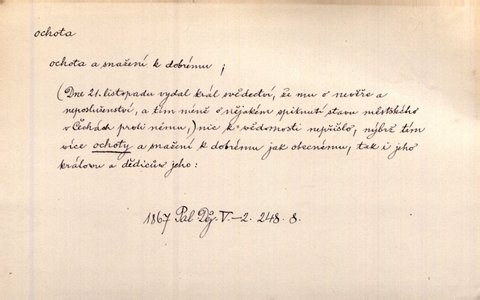 ochota
ochota a snažení k dobrému ;
(Dne 21. listopadu vydal král svědectví, že mu o nevěře a
neposlušenství, a tím méně o nějakém spiknutí stavu městského
v Čechách proti němu,) nic k vědomosti nepřišlo, nýbrž tím
více ochoty a snažení k dobrému jak obecnému, tak i jeho
královu a dědicův jeho :
1867 Pal. Děj. V.–2. 248. 8.